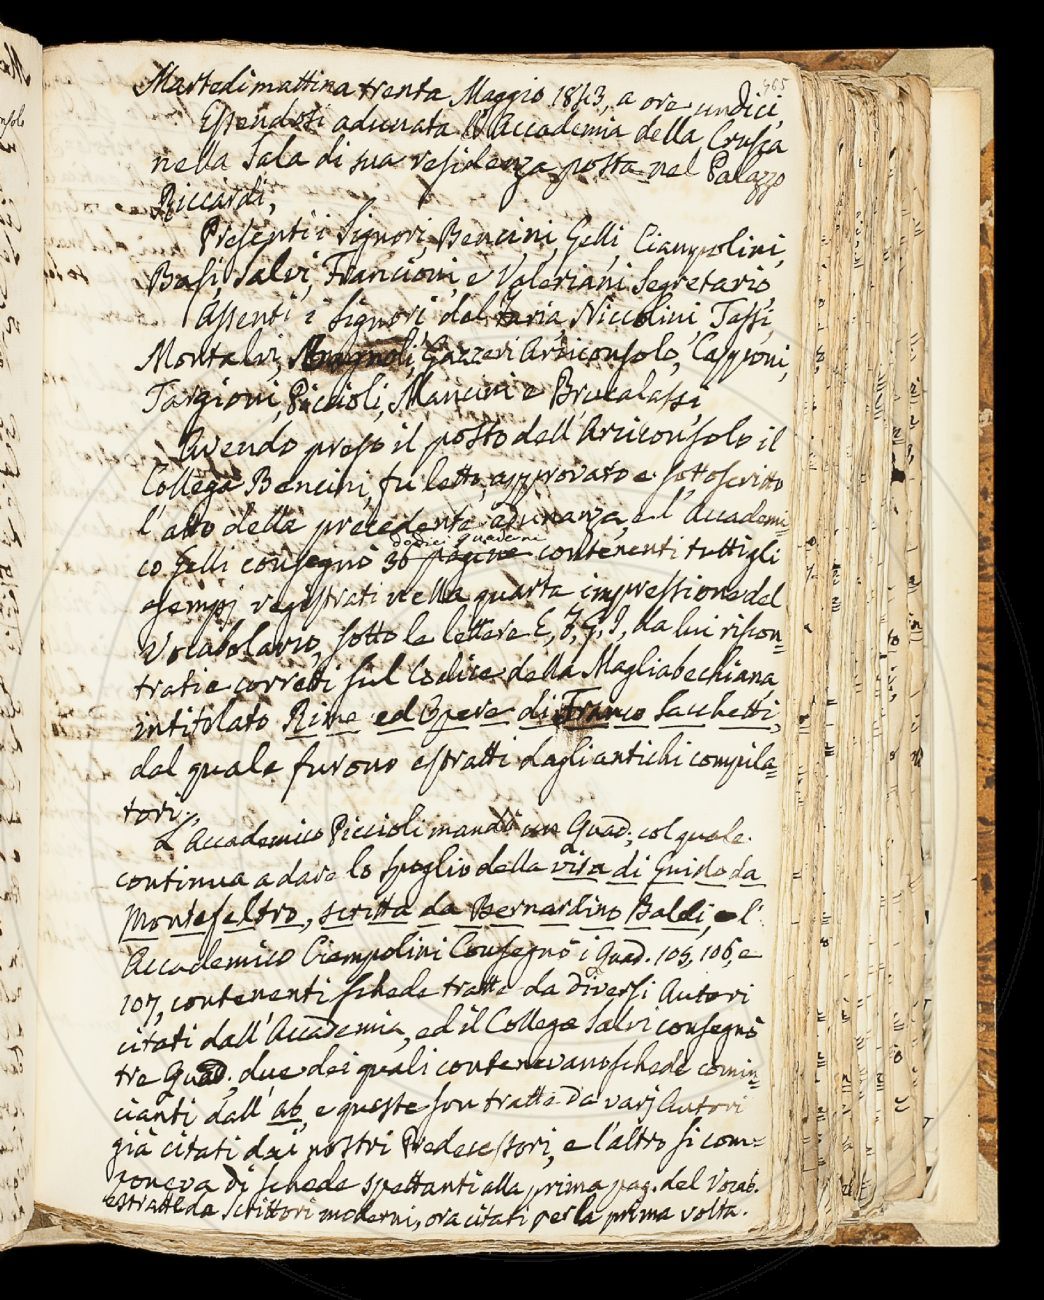 465
Martedì mattina trenta Maggio 1843, a ore undici,
Essendosi adunata l'Accademia della Crusca
nella Sala di sua residenza posta nel Palazzo
Riccardi,
Presenti i Signori, Bencini, Gelli, Ciampolini,
Basi, Salvi, Francioni, e Valeriani Segretario,
Assenti i Signori del Furia, Niccolini, Tassi,
Montalvi, Gazzeri Arciconsolo, Capponi,
Targioni, Piccioli, Mancini e Brucalassi
Avendo preso il posto dell'Arciconsolo il
Collega Bencini, fu letto, approvato e sottoscritto
l'atto della precedente adunanza, e l'Accademi=
dodici quaderni
co Gelli consegnò 30 pagine contenenti tutti gli
esempj registrati nella quarta impressione del
Vocabolario, sotto le lettere E, F, G, I, da lui riscon=
trati e corretti sul Codice della Magliabechiana
intitolato Rime ed Opere di Franco Sacchetti,
dal quale furono estratti dagli antichi compila=
tori.
L'Accademico Piccioli mandò un Quad., col quale
continua a dare lo spoglio della vita di Guido da
Montefeltro, scritta da Bernardino Baldi, e l'
Accademico Ciampolini Consegnò i Quad. 105, 106, e
107, contenenti schede tratte da diversi Autori
citati dall'Accademia, ed il Collega Salvi consegnò
tre Quad., due dei quali contenevano schede comin=
cianti dall'ab, e queste son tratte da varj Autori
già citati dai nostri Predecessori, e l'altro si com=
poneva di schede spettanti alla prima pag. del Vocab.
estratte da Scrittori moderni, ora citati per la prima volta.